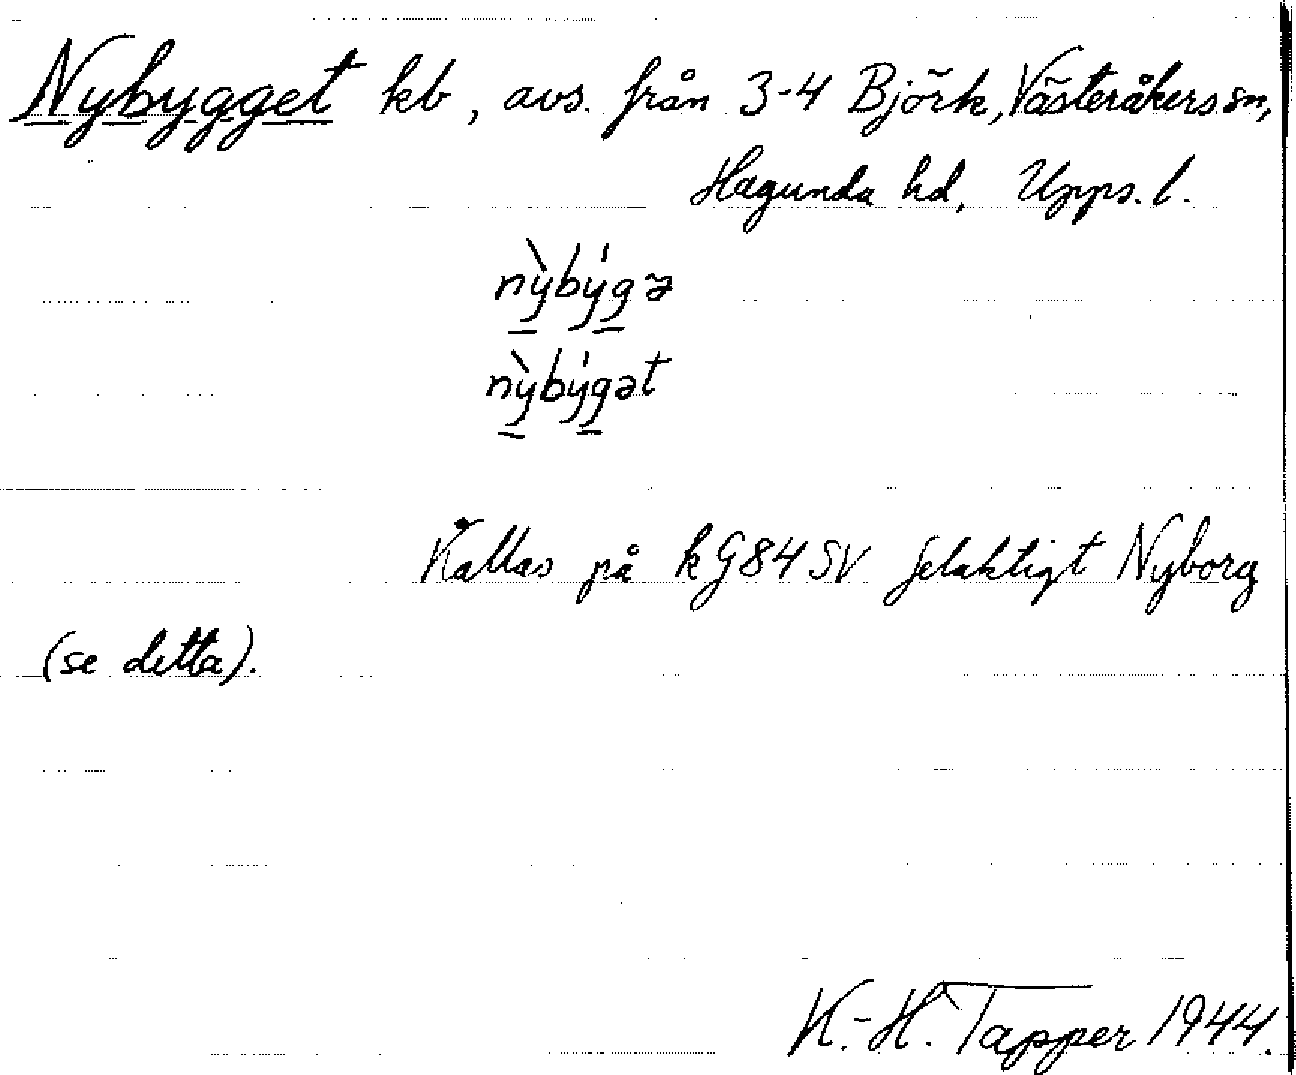 Nybygget kb, avs. från 3-4 Björk, Västeråkers sn,
Hagunda hd, Upps. l.
nỳbýgə
nỳbýgət
Kallas på kG84SV felaktigt Nyborg
(se detta).
K.-H. Tapper 1944.